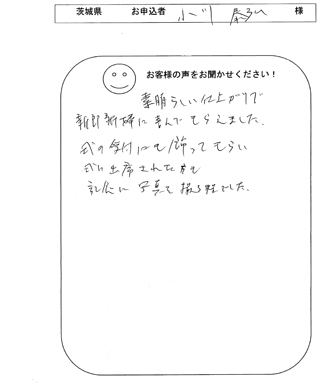 茨城県 お申込者 小川 様
お客様の声をお聞かせください！
素晴らしい仕上がりで
新郎新婦に喜んでもらえました。
式の受付にも飾ってもらい
式に出席された方も
記念に写真を撮る程でした。